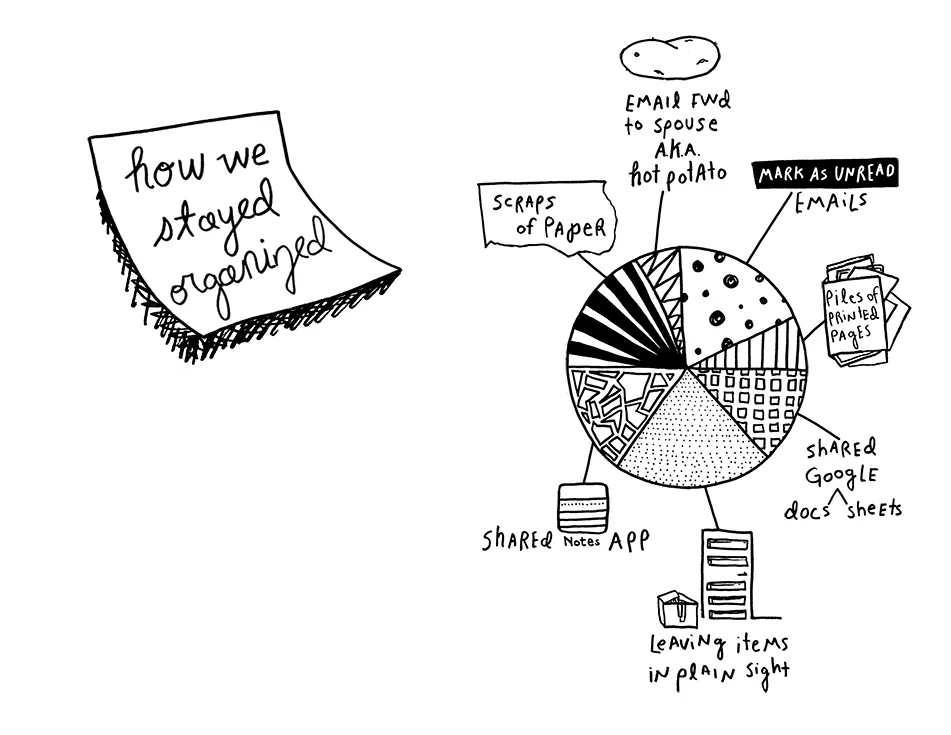 how we
stayed
organized
EMAIL FWD
to SPOUSE
A.K.A.
hot potAto
MARK AS UNREAD
EMAiLS
SCRAPS
of PApeR
PiLes of
PRiNTED
PAGES
ShARED
GOOglE
docs sheets
ShARED Notes APP
LEAViNg iteMs
iN plAiN Sight